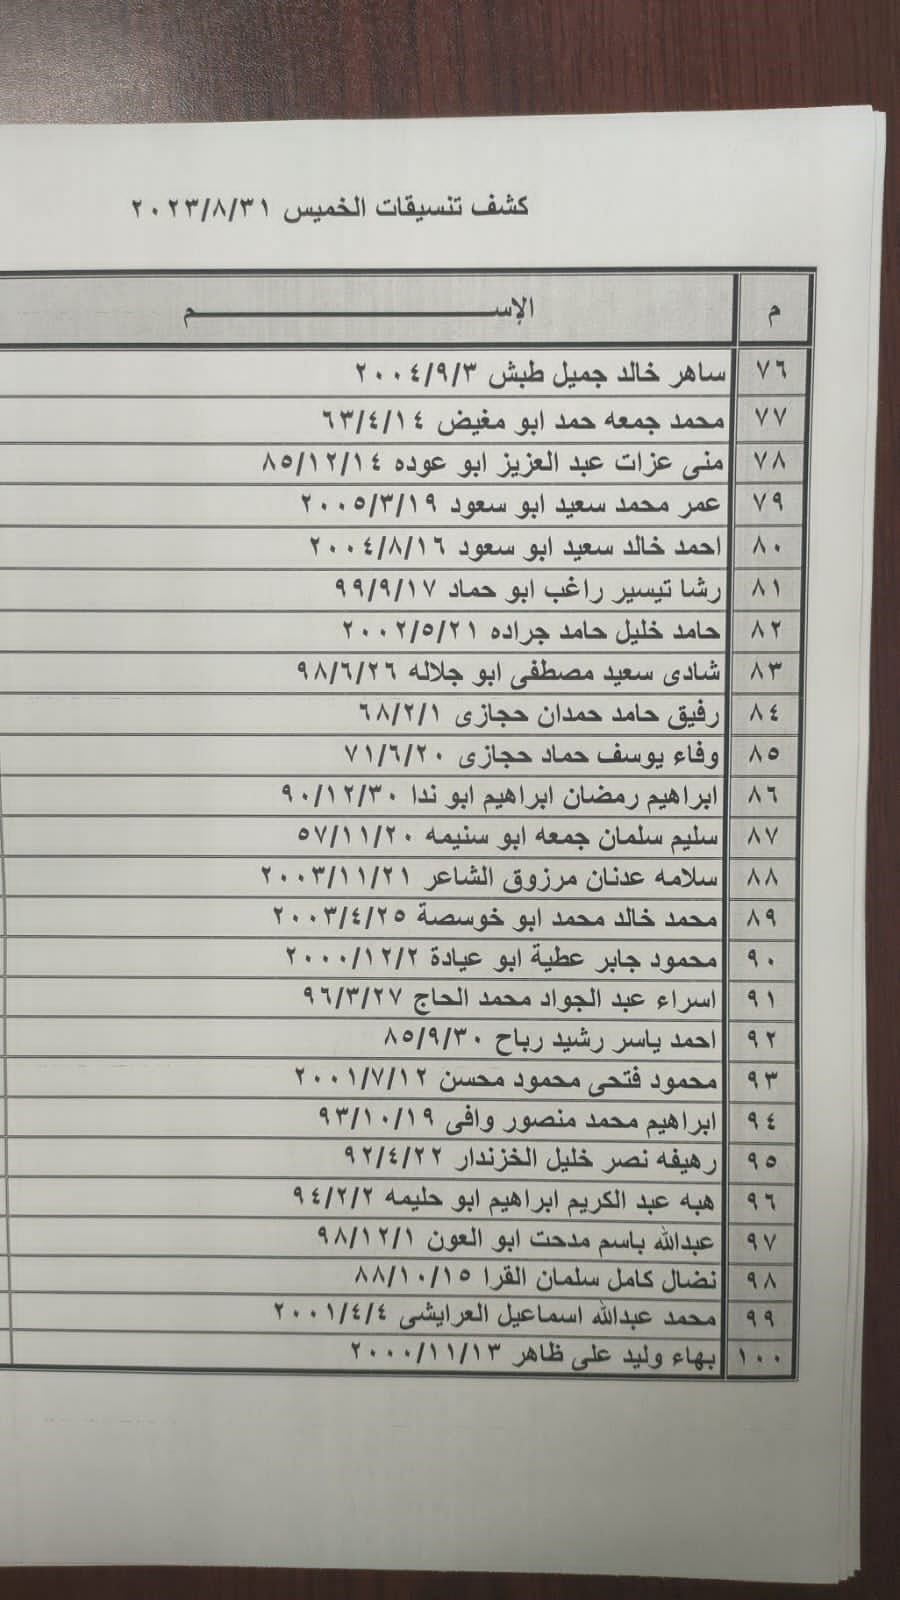 كشف تنسيقات الخميس ٢٠٢٣/٨/٣١
م الإســـــــم
٧٦ ساهر خالد جميل طبش ٢٠٠٤/٩/٣
٧٧ محمد جمعه حمد ابو مغيض ٦٣/٤/١٤
٧٨ منى عزات عبد العزيز ابو عوده ٨٥/١٢/١٤
٧٩ عمر محمد سعيد ابو سعود ٢٠٠٥/٣/١٩
٨٠ احمد خالد سعيد ابو سعود ٢٠٠٤/٨/١٦
٨١ رشا تيسير راغب ابو حماد ٩٩/٩/١٧
٨٢ حامد خليل حامد جراده ٢٠٠٢/٥/٢١
٨٣ شادى سعيد مصطفى ابو جلاله ٩٨/٦/٢٦
٨٤ رفيق حامد حمدان حجازى ٦٨/٢/١
٨٥ وفاء يوسف حماد حجازى ٧١/٦/٢٠
٨٦ ابراهيم رمضان ابراهيم ابو ندا ٩٠/١٢/٣٠
٨٧ سليم سلمان جمعه ابو سنيمه ٥٧/١١/٢٠
٨٨ سلامه عدنان مرزوق الشاعر ٢٠٠٣/١١/٢١
٨٩ محمد خالد محمد ابو خوسصة ٢٠٠٣/٤/٢٥
٩٠ محمود جابر عطية ابو عيادة ٢٠٠٠/١٢/٢
٩١ اسراء عبد الجواد محمد الحاج ٩٦/٣/٢٧
٩٢ احمد ياسر رشيد رباح ٨٥/٩/٣٠
٩٣ محمود فتحى محمود محسن ٢٠٠١/٧/١٢
٩٤ ابراهيم محمد منصور وافى ٩٣/١٠/١٩
٩٥ رهيفه نصر خليل الخزندار ٩٢/٤/٢٢
٩٦ هبه عبد الكريم ابراهيم ابو حليمه ٩٤/٢/٢
٩٧ عبدالله باسم مدحت ابو العون ٩٨/١٢/١
٩٨ نضال كامل سلمان القرا ٨٨/١٠/١٥
٩٩ محمد عبدالله اسماعيل العرايشى ٢٠٠١/٤/٤
١٠٠ بهاء وليد على ظاهر ٢٠٠٠/١١/١٣